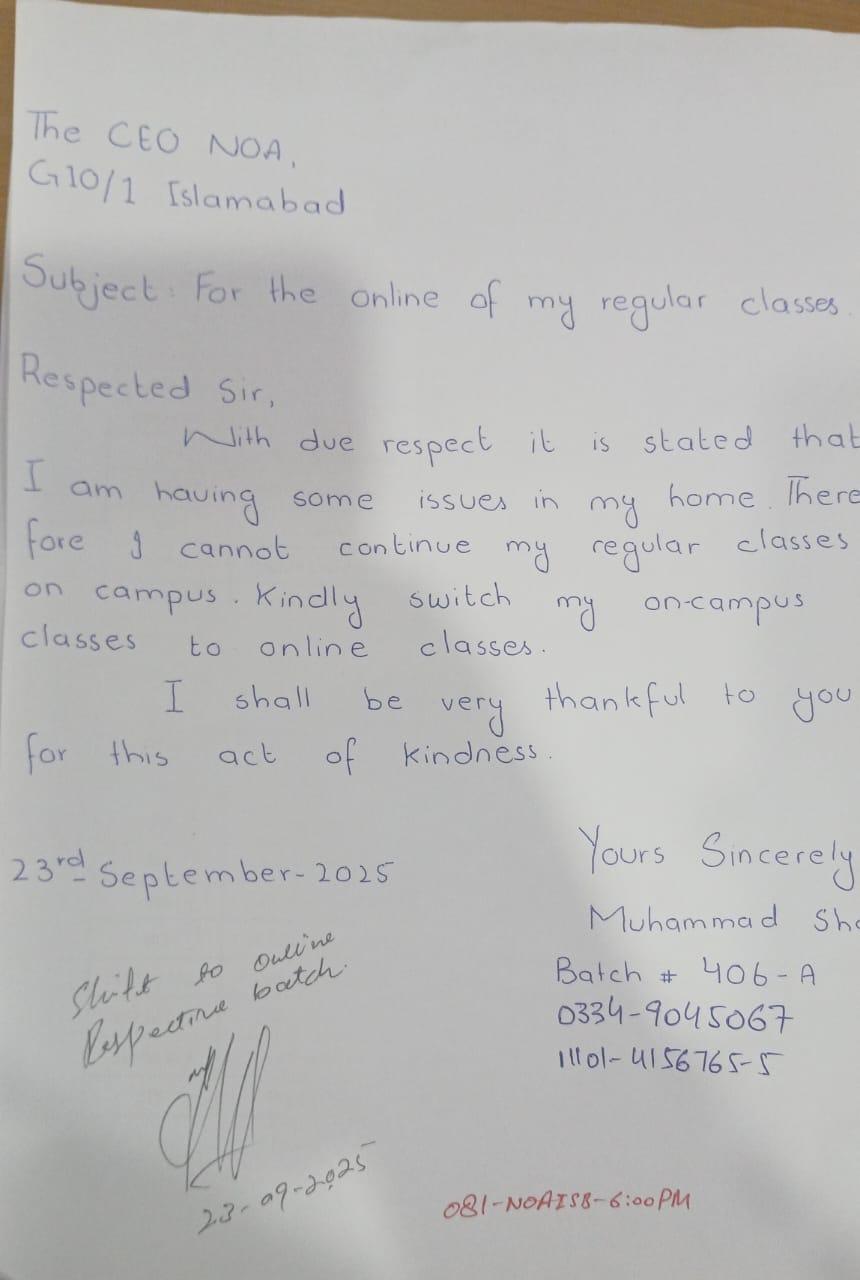 The CEO NOA,
G10/1 Islamabad
Subject: For the online of my regular classes.
Respected Sir,
With due respect it is stated that
I am having some issues in my home. There
fore I cannot continue my regular classes
on campus. Kindly switch my on-campus
classes to online classes.
I shall be very thankful to you
for this act of kindness.
23rd September-2025
Yours Sincerely
Muhammad
Batch # 406-A
0334-9045067
11101-4156765-5
Shift to online
Respective batch.
23-09-2025
081-NOAISB-6:00PM